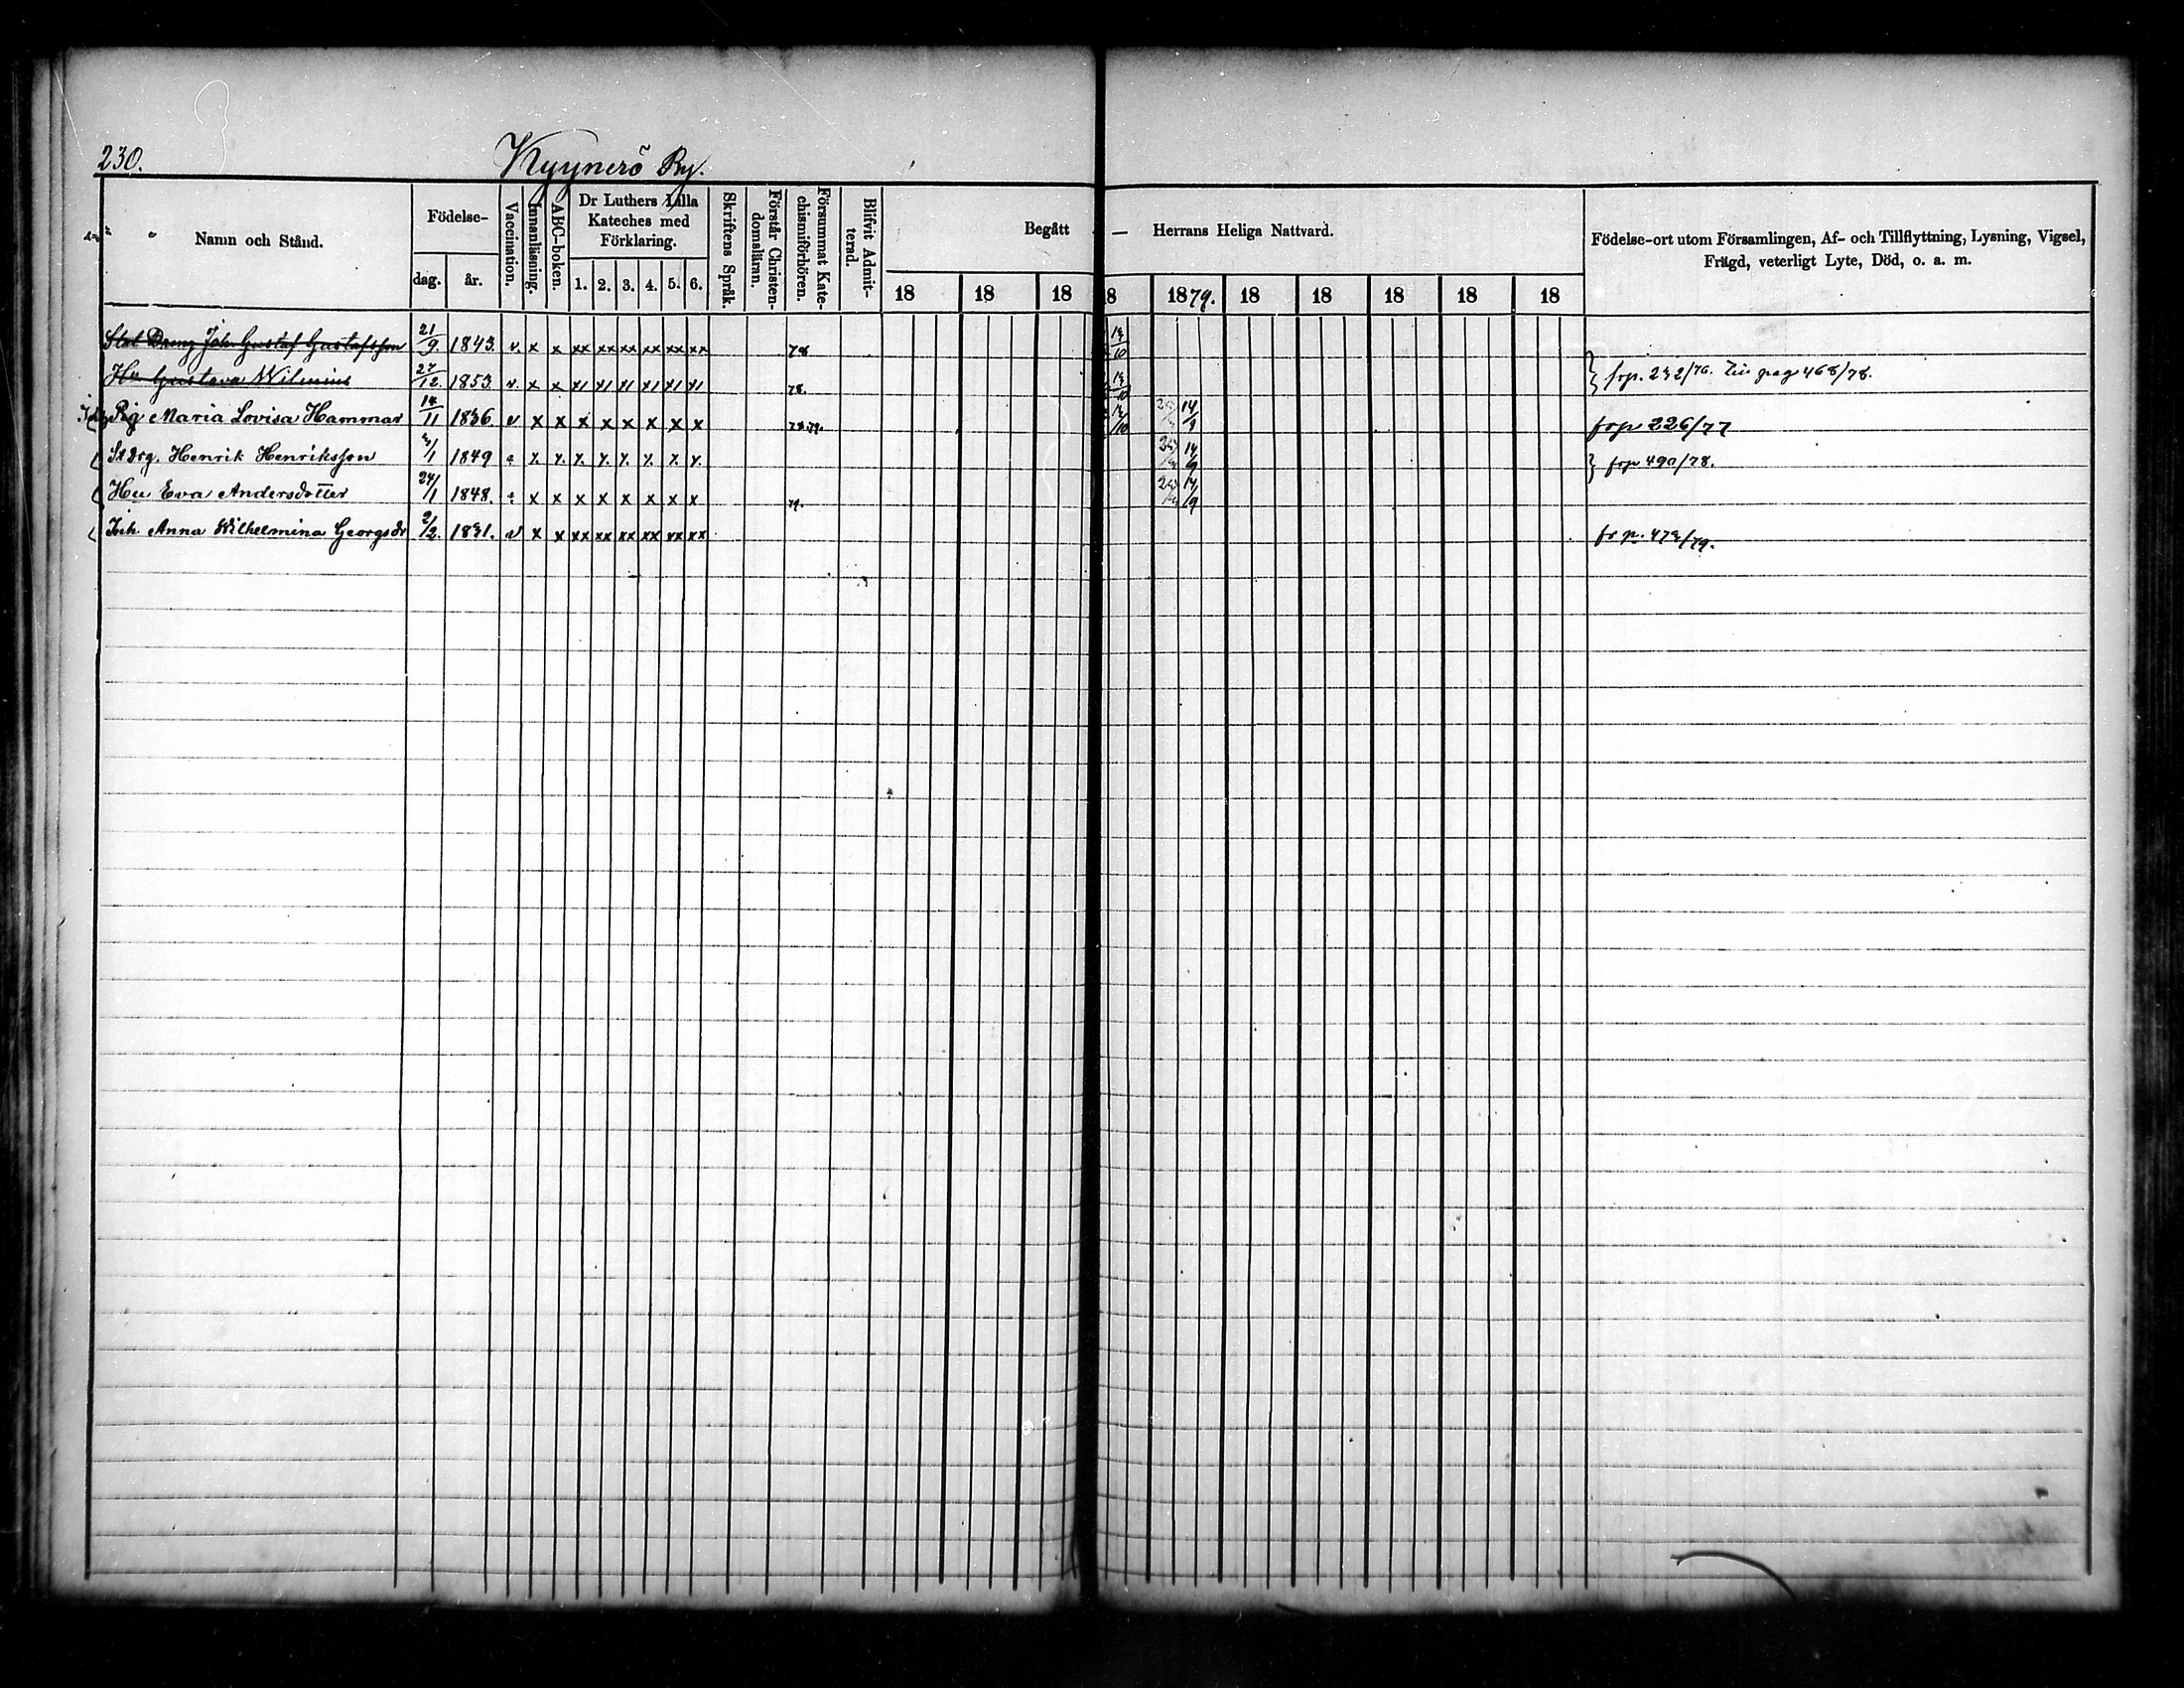 230.
Kyynerö By.
Namn och Stånd.
Födelse-
dag.
år.
Vaccination.
Innanläsning.
ABC-boken.
Dr Luthers Lilla
Kateches med
Förklaring.
1. 2. 3. 4. 5. 6.
Skriftens Språk.
Förstår Christen-
domsläran.
Försummat Kate-
chismiförhören.
Blifvit Admit-
terad.
Begått — Herrans Heliga Nattvard.
18 18 18 18 1879. 18 18 18 18 18
Födelse-ort utom Församlingen, Af- och Tillflyttning, Lysning, Vigsel,
Frägd, veterligt Lyte, Död, o. a. m.
Joh. Gustaf Gustafsson 21/9. 1843. v. x x xx xx xx xx xx xx 78
Hu Gustava 27/12. 1853 v. x x 78. } frp. 232/76. 468/78.
Pig Maria Lovisa Hammar 14/11 1836. v x x x x x x x x 14/9 frp 226/77
Henrik Henriksson 1849 14/9 } frp 490/78.
Hu Eva Andersdotter 24/1 1848. x x x x x x x x 79. 14/9
Inh. Anna Wilhelmina Georgsdr 2/2. 1831. v x x xx xx xx xx xx xx fr p. 473/79.